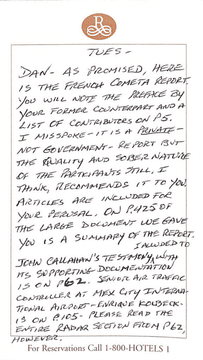 R
TUES -
DAN - AS PROMISED, HERE
IS THE FRENCH COMETA REPORT.
YOU WILL NOTE THE PREFACE BY
YOUR FORMER COUNTERPART AND A
LIST OF CONTRIBUTORS ON P5.
I MISSPOKE - IT IS A PRIVATE -
NOT GOVERNMENT - REPORT BUT
THE QUALITY AND SOBER NATURE
OF THE PARTICIPANTS STILL, I
THINK, RECOMMENDS IT TO YOU.
ARTICLES ARE INCLUDED FOR
YOUR PERUSAL. ON P.425 OF
THE LARGE DOCUMENT WE GAVE
YOU IS A SUMMARY OF THE REPORT.
I ALLUDED TO
JOHN CALLAHAN'S TESTIMONY, WITH
ITS SUPPORTING DOCUMENTATION
IS ON P62. SENIOR AIR TRAFFIC
CONTROLLER AT MEX CITY INTERNA-
TIONAL AIRPORT - ENRIQUE KOLBECK -
IS ON P105 - PLEASE READ THE
ENTIRE RADAR SECTION FROM P62,
HOWEVER.
For Reservations Call 1-800-HOTELS 1